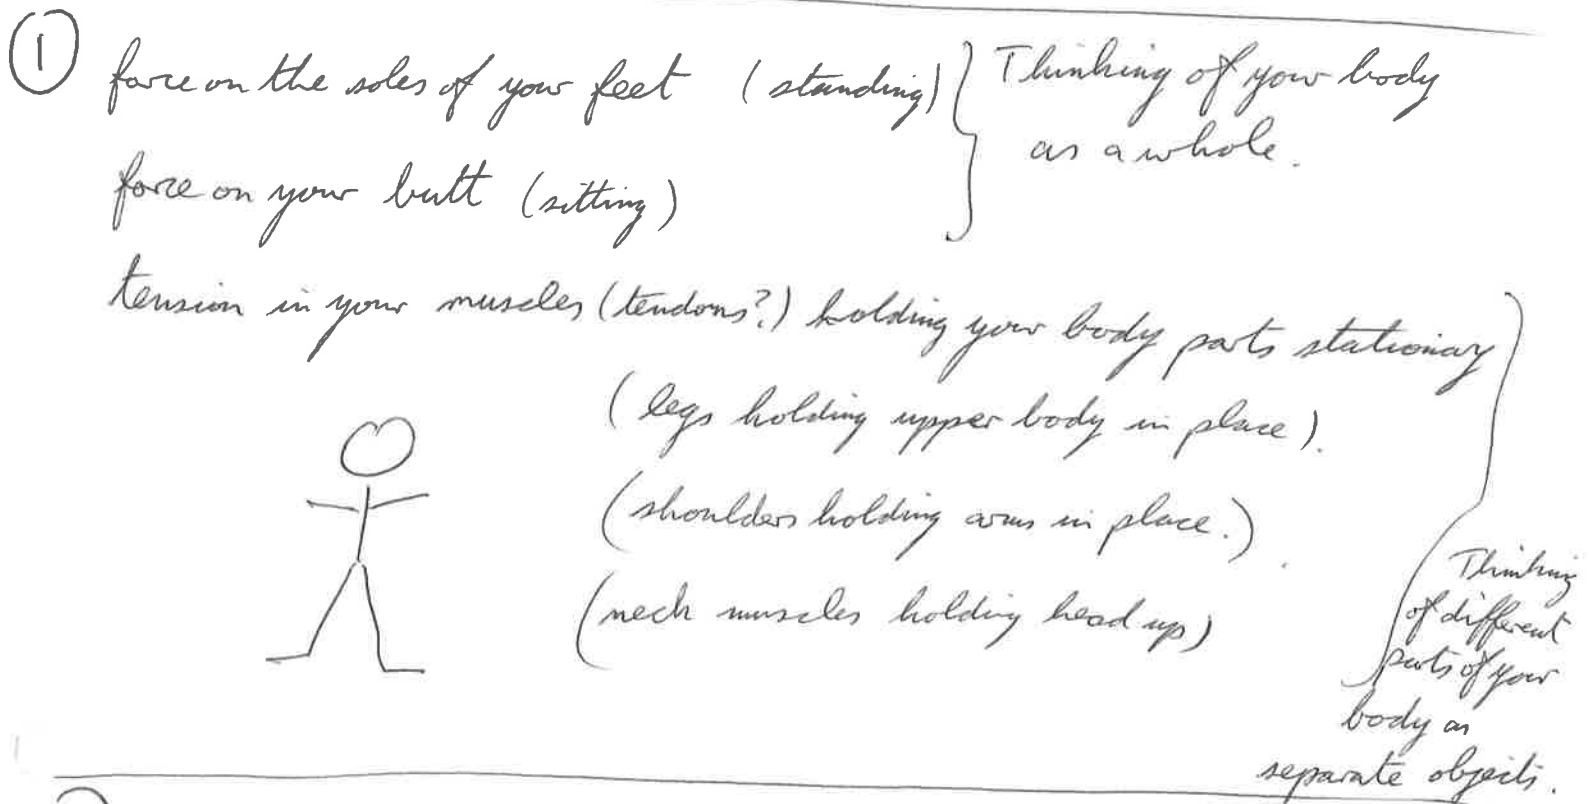 1
force on the soles of your feet (standing)
force on your butt (sitting)
Thinking of your body
as a whole.
tension in your muscles (tendons?) holding your body parts stationary
(legs holding upper body in place).
(shoulders holding arms in place.)
(neck muscles holding head up)
Thinking
of different
parts of your
body as
separate objects.